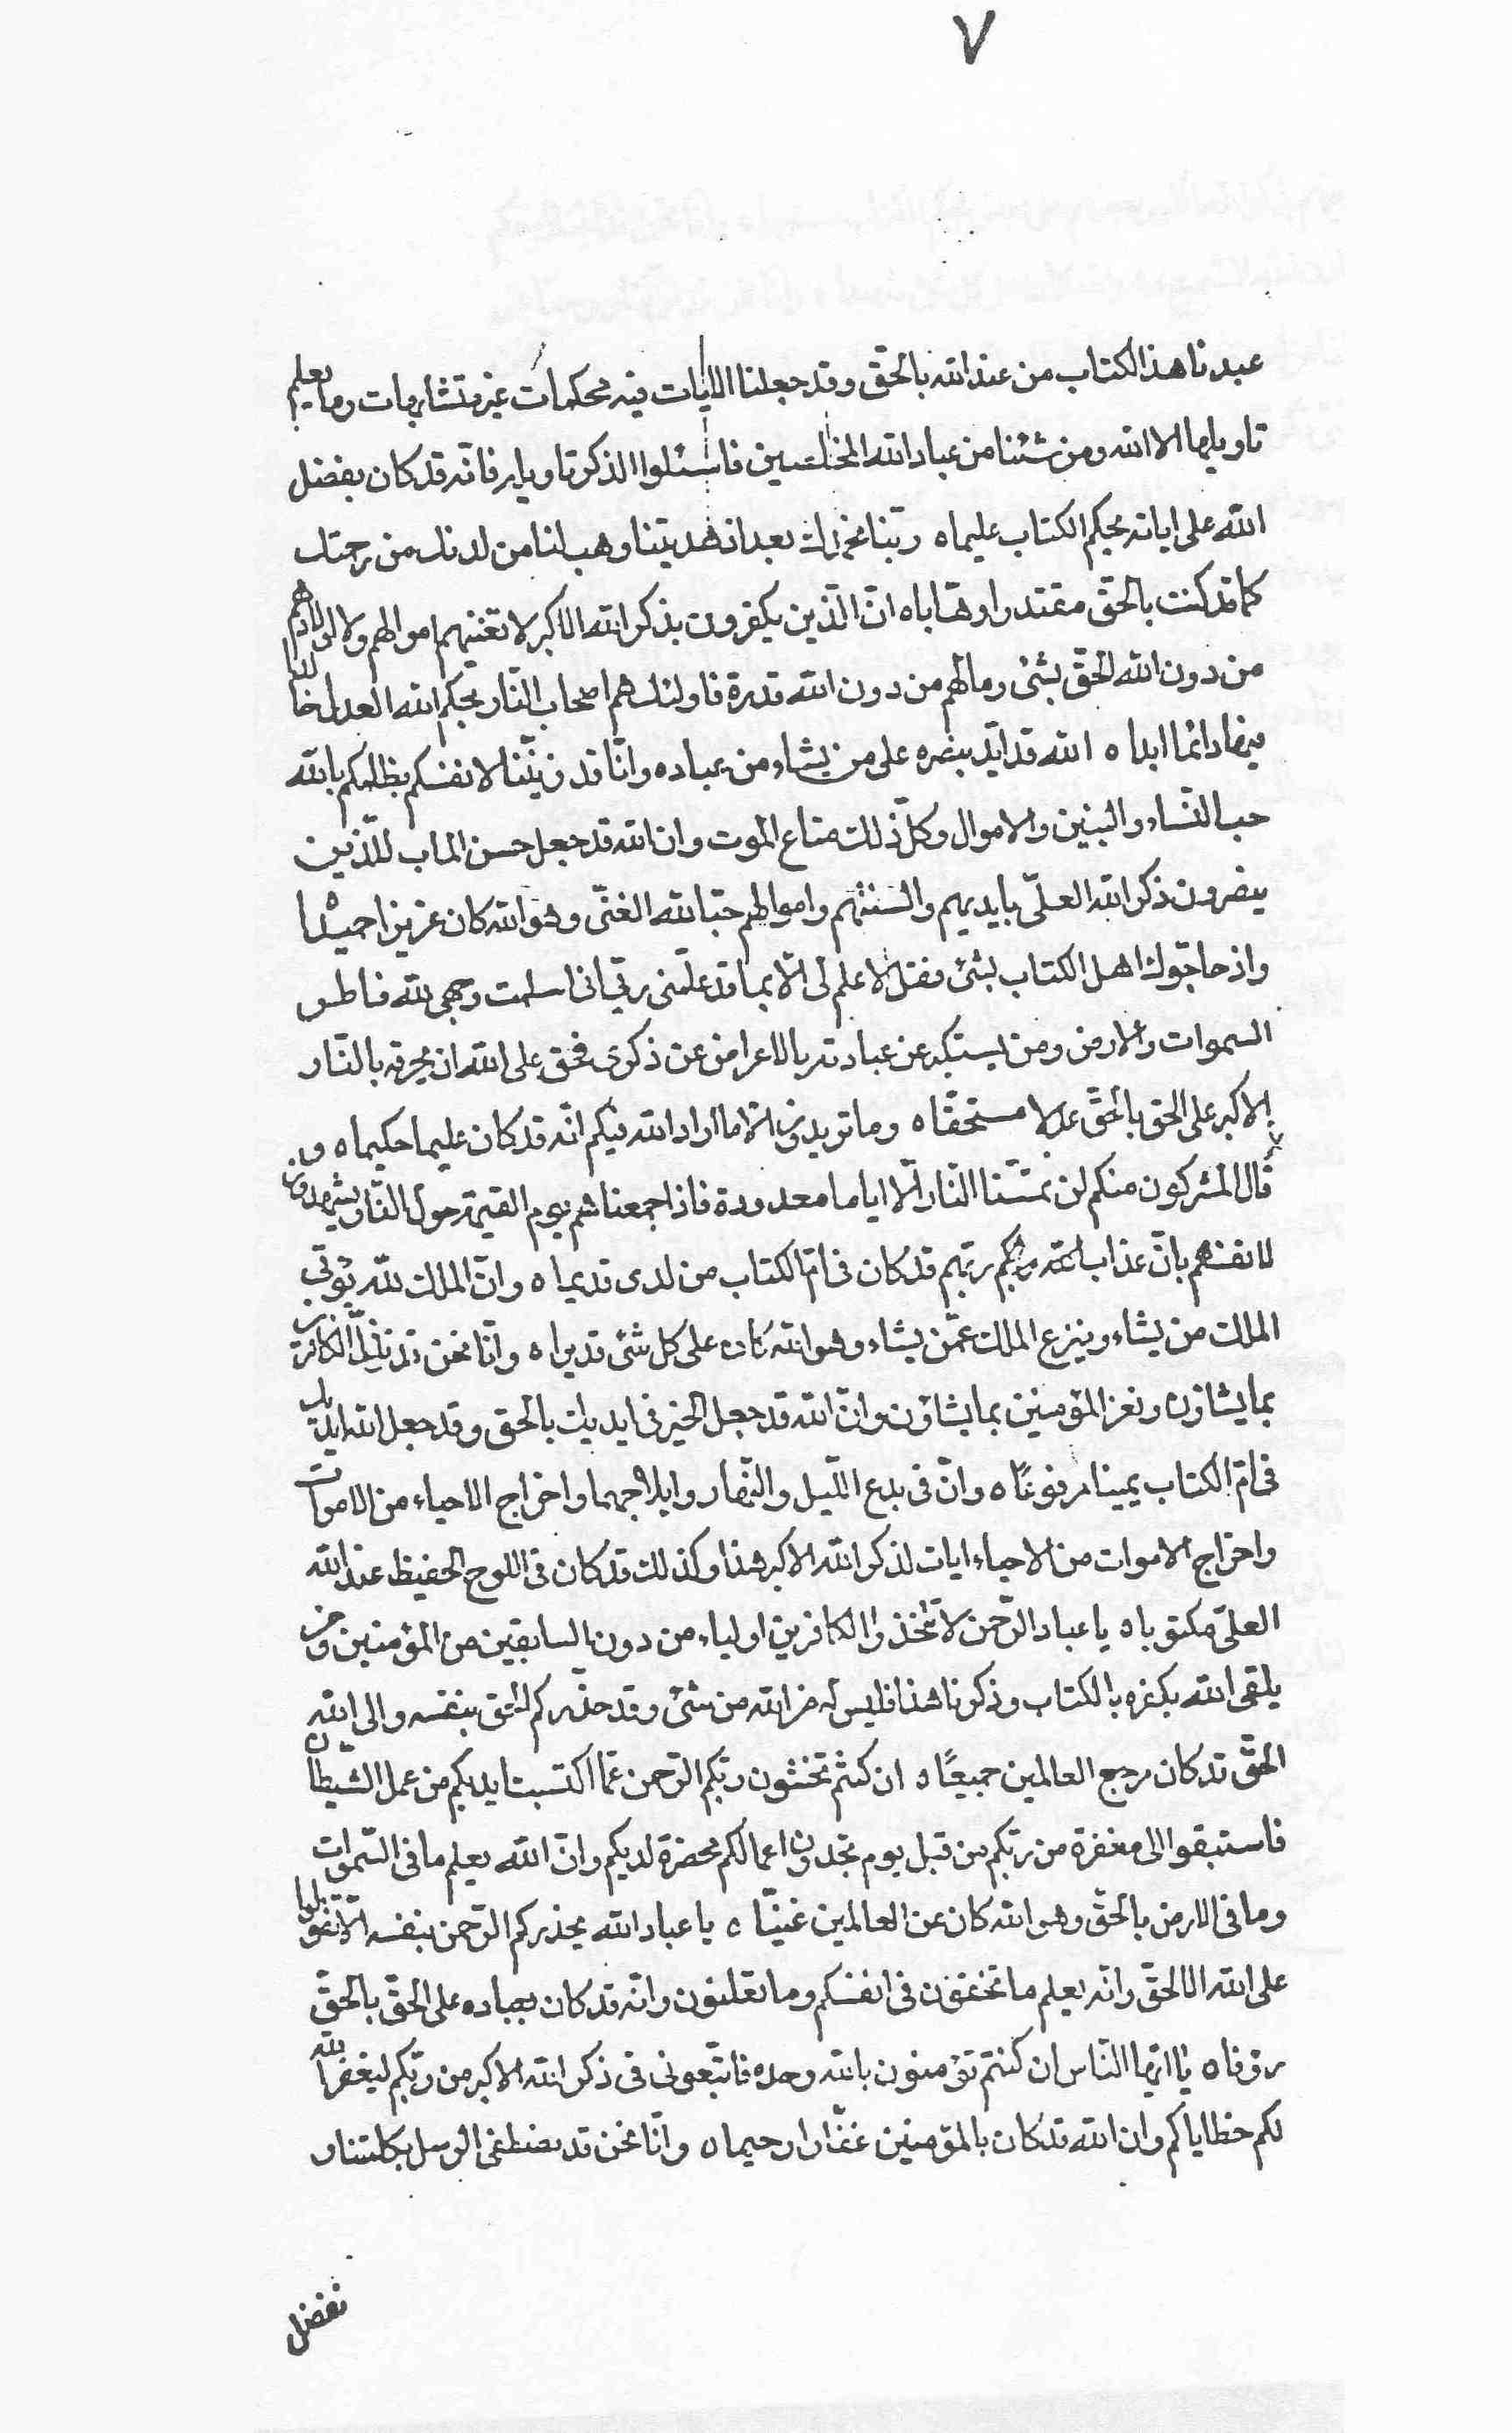 ٧
عبدنا هذا الكتاب من عند الله بالحقّ وقد جعلنا الايات فيه محكمات غير متشابهات وما يعلم
تاويلها الا الله ومن شئنا من عباد الله المخلصين فاسئلوا الذكر تاويله فانّه قد كان بفضل
الله على اياته بحكم الكتاب عليما ه ربّنا بعد اذ هديتنا وهب لنا من لدنك من رحمتك
كما قد كنت بالحقّ مقتدرا وهّابا ه انّ الّذين يكفرون بذكر الله الاكبر لا تغنيهم اموالهم ولا اولادهم
من دون الله الحقّ بشئ وما لهم من دون الله قدرة فاولئك هم اصحاب النّار بحكم الله العدل خالدا
فيها دائما ابدا ه الله قد ايّد بنصره على من يشاء من عباده وانّا قد زيّنّا لانفسكم بظلمكم بالله
حب النّساء والبنين والاموال وكلّ ذلك متاع الموت وان الله قد جعل حسن الماب للّذين
ينصرون ذكر الله العلىّ بايديهم والسنتهم واموالهم حبّا لله الغنىّ وهو الله كان عزيزا حميدا
واذ حاجّوك اهل الكتاب بشئ فقل لا علم لى الّا بما قد علّمنى ربّى انى اسلمت وجهى لله فاطر
السموات والارض ومن يستكبر عن عبادته بالاعراض عن ذكرى فحق على الله ان يحرقه بالنّار
الاكبر على الحق بالحقّ عدلا مستحقّا ه وما تريدون الّا ما اراد الله فيكم انّه قد كان عليما حكيما ه و
قال المشركون منكم لن تمسّنا النّار الّا اياما معدودة فاذا جمعناهم يوم القيمة حول النّار يشهدون
لانفسهم بانّ عذاب الله بحكم ربّهم قد كان فى امّ الكتاب من لدى قديما ه وانّ الملك لله يؤتى
الملك من يشاء وينزع الملك عمّن يشاء وهو الله كان على كل شئ قديرا ه وانّا نحن قد نذلّ الكافرين
بما يشاؤن ونعز المؤمنين بما يشاؤن وانّ الله قد جعل الخير فى ايديك بالحق وقد جعل الله ايديك
فى امّ الكتاب يمينا مرفوعًا ه وانّ فى بدع اللّيل والنّهار وايلاجهما واخراج الاحياء من الاموات
واخراج الاموات من الاحياء ايات لذكر الله الاكبر هذا وكذلك قد كان فى اللوح الحفيظ عند الله
العلىّ مكتوبا ه يا عباد الرّحمن لا تتّخذوا الكافرين اولياء من دون السابقين من المؤمنين ومن
يلقى الله بكفره بالكتاب وذكرنا هذا فليس له من الله من شئ وقد حذّركم الحق بنفسه والى الله
الحقّ قد كان مرجع العالمين جميعًا ه ان كنتم تخشون ربّكم الرّحمن عمّا اكتسبت ايديكم من عمل الشّيطان
فاستبقوا الى مغفرة من ربّكم من قبل يوم تجدون اعمالكم محضرة لديكم وانّ الله يعلم ما فى السّموات
وما فى الارض بالحقّ وهو الله كان عن العالمين غنيّا ه يا عباد الله يحذركم الرّحمن بنفسه الّا تقولوا
على الله الا الحقّ وانّه يعلم ما تخفون فى انفسكم وما تعلنون وانّه قد كان بعباده على الحقّ بالحقّ
رؤفا ه يا ايّها النّاس ان كنتم تؤمنون بالله وحده فاتّبعونى فى ذكر الله الاكبر من ربّكم ليغفر الله
لكم خطاياكم وان الله قد كان بالمؤمنين غفّارا رحيما ه وانّا نحن قد نصطفى الرسل بكلمتنا و
نفضل